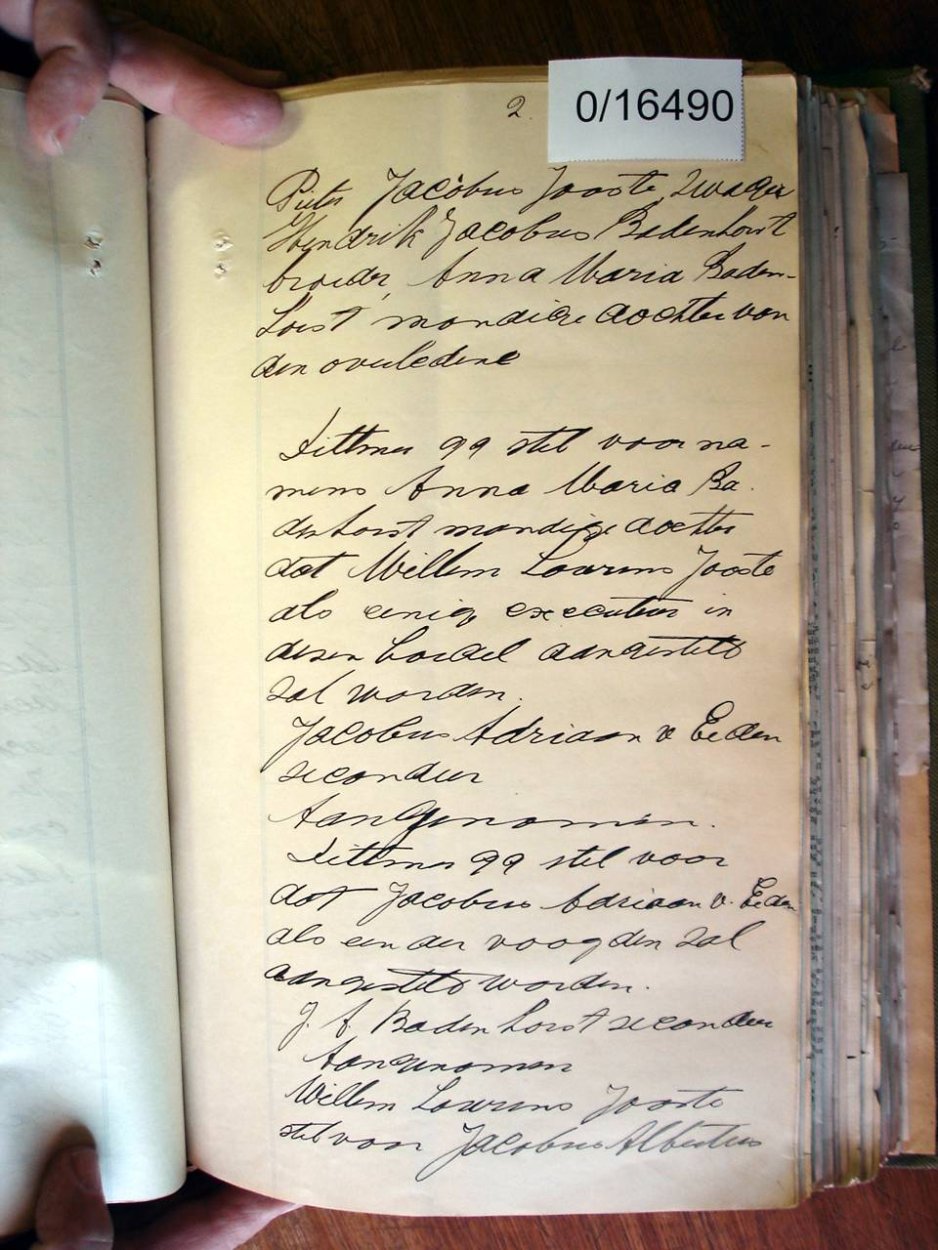 2.
0/16490
Pieter Jacobus Jooste, Zwager
Hendrik Jacobus Badenhorst
broeder, Anna Maria Baden-
horst mondige dochter van
den overledene
qq stel voor na-
mens Anna Maria Ba.
denhorst mondige dochter
dat Willem Lourens Jooste
als eenig executeur in
dezen boedel aangesteld
zal worden.
Jacobus Adriaan v Eeden
secondeer
Aangenomen.
qq stel voor
dat Jacobus Adriaan v. Eeden
als een der voogden zal
aangesteld worden.
J. A. Badenhorst secondeer
Aangenomen
Willem Lourens Jooste
stel voor Jacobus Albertus